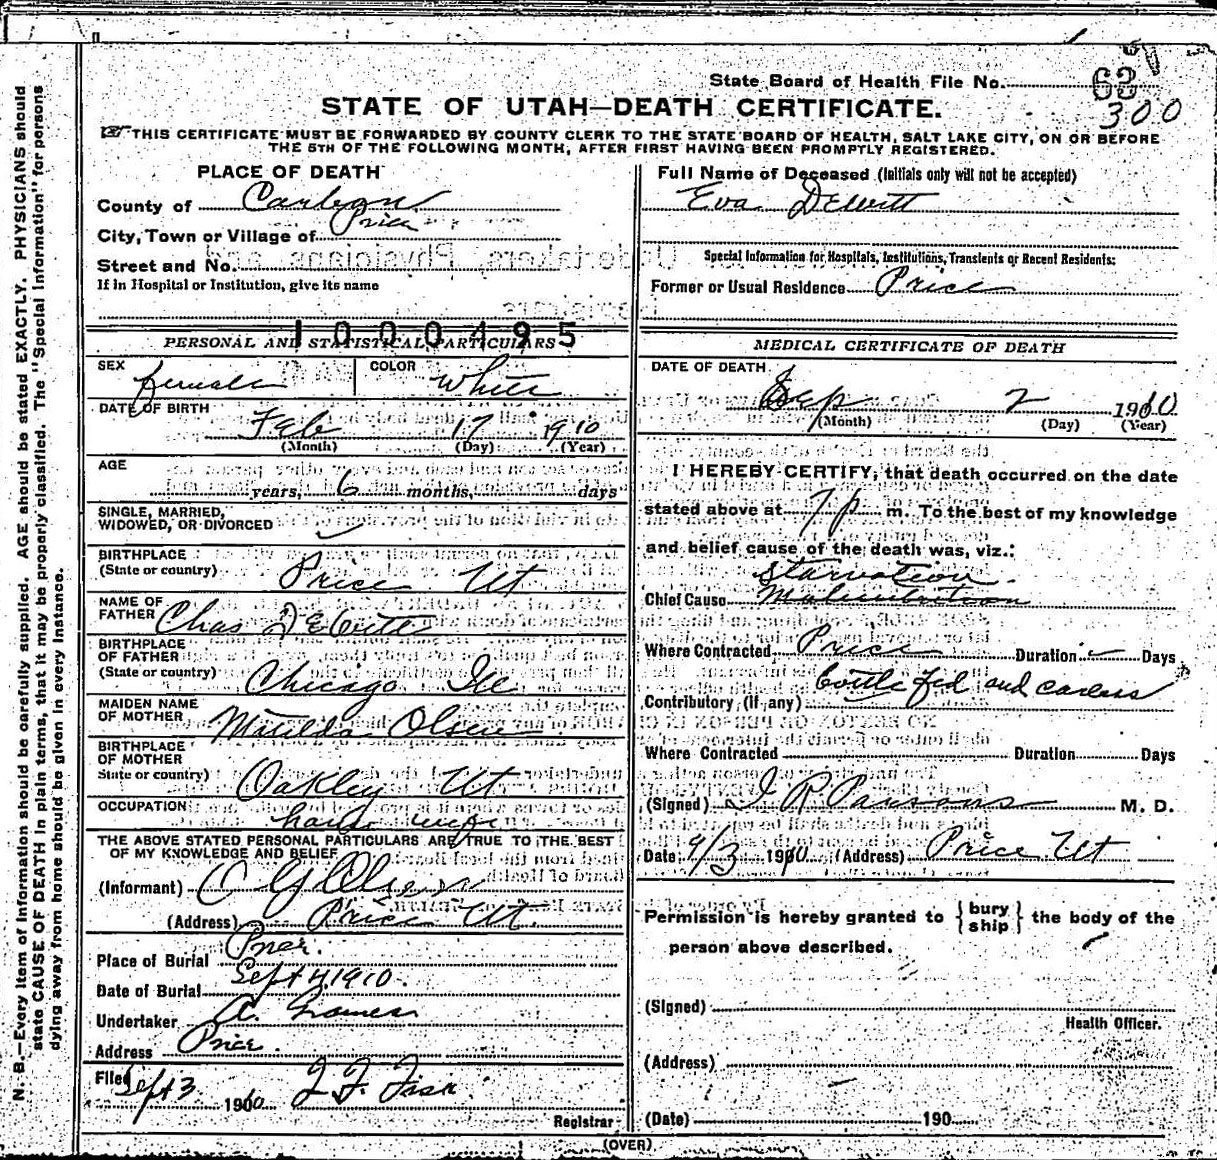 State Board of Health File No. 63
300
STATE OF UTAH—DEATH CERTIFICATE.
THIS CERTIFICATE MUST BE FORWARDED BY COUNTY CLERK TO THE STATE BOARD OF HEALTH, SALT LAKE CITY, ON OR BEFORE
THE 5TH OF THE FOLLOWING MONTH, AFTER FIRST HAVING BEEN PROMPTLY REGISTERED.
PLACE OF DEATH
County of Carbon
City, Town or Village of Price
Street and No.
If in Hospital or Institution, give its name
1000495
PERSONAL AND STATISTICAL PARTICULARS
SEX female COLOR White
DATE OF BIRTH
Feb 17 1910
(Month) (Day) (Year)
AGE
years, 6 months, days
SINGLE, MARRIED,
WIDOWED, OR DIVORCED
BIRTHPLACE
(State or country) Price Ut
NAME OF
FATHER Chas DeWitt
BIRTHPLACE
OF FATHER
(State or country) Chicago Ill
MAIDEN NAME
OF MOTHER Matilda Olsen
BIRTHPLACE
OF MOTHER
State or country) Oakley Ut
OCCUPATION
house wife
THE ABOVE STATED PERSONAL PARTICULARS ARE TRUE TO THE BEST
OF MY KNOWLEDGE AND BELIEF
(Informant) C G Olsen
(Address) Price Ut.
Place of Burial Price.
Date of Burial Sept 4, 1910.
Undertaker A.
Address Price.
Filed
Sept 3 1910 J. F. Fish
Registrar
Full Name of Deceased (Initials only will not be accepted)
Eva DeWitt
Special Information for Hospitals, Institutions, Transients or Recent Residents:
Former or Usual Residence Price
MEDICAL CERTIFICATE OF DEATH
DATE OF DEATH
Sep 2 1910
(Month) (Day) (Year)
I HEREBY CERTIFY, that death occurred on the date
stated above at 7 p m. To the best of my knowledge
and belief cause of the death was, viz.:
Starvation
Chief Cause Malnutrition
Where Contracted Price Duration Days
bottle fed and careless
Contributory (if any)
Where Contracted Duration Days
(Signed) I R Parsons M. D.
Date 9/3 1910 (Address) Price Ut
Permission is hereby granted to {bury ship} the body of the
person above described.
(Signed)
Health Officer.
(Address)
(Date) 190
(OVER)
N. B.—Every item of information should be carefully supplied. AGE should be stated EXACTLY. PHYSICIANS should
state CAUSE OF DEATH in plain terms, that it may be properly classified. The "Special Information" for persons
dying away from home should be given in every instance.